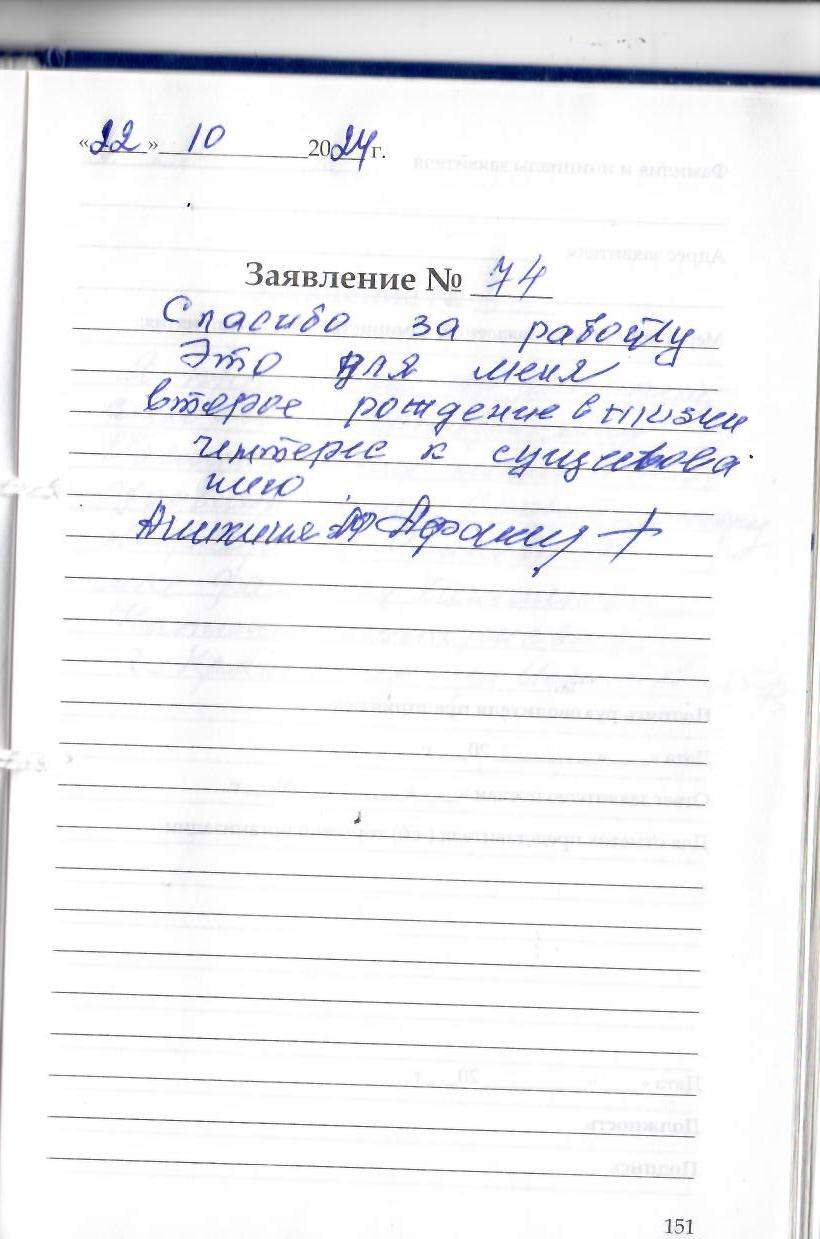 «22» 10 2024 г.
Заявление № 74
Спасибо за работу
Это для меня
второе рождение в жизни
интерес к существова
нию
151